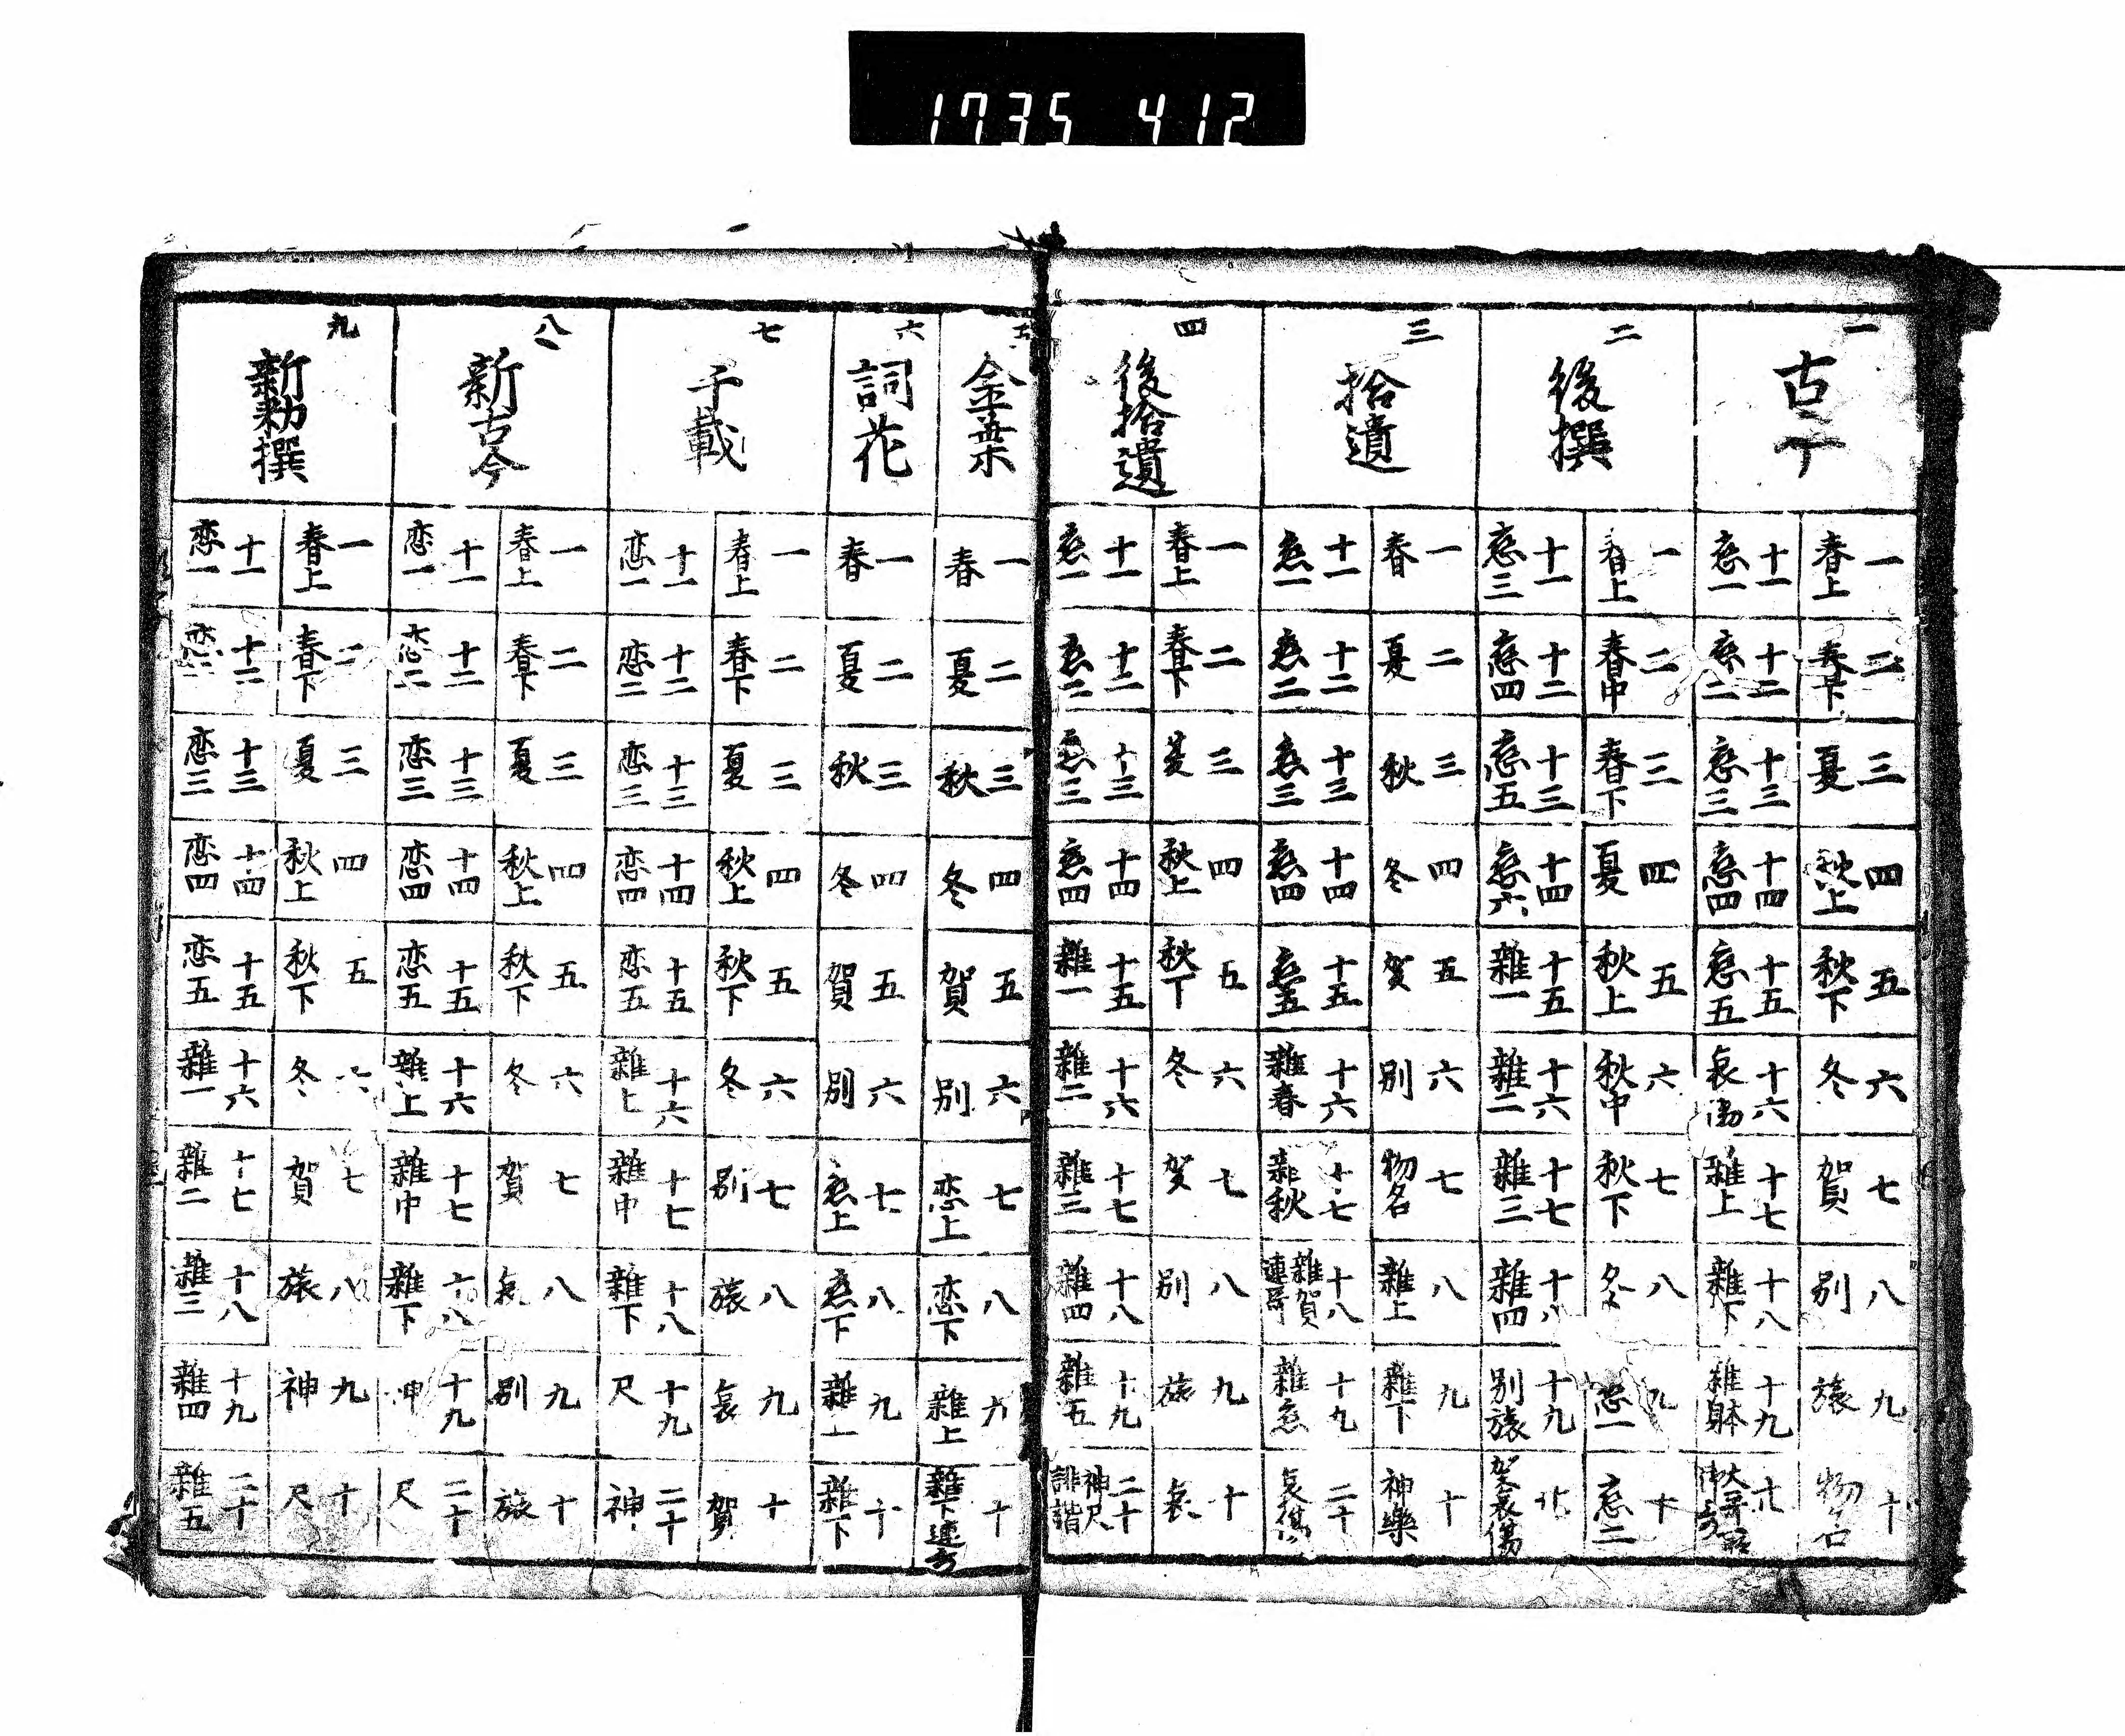 1735 412
一
古今
一 春上
二 春下
三 夏
四 秋上
五 秋下
六 冬
七 賀
八 別
九 旅
十 物名
十一 恋一
十二 恋二
十三 恋三
十四 恋四
十五 恋五
十六 哀傷
十七 雑上
十八 雑下
十九 雑躰
二
後撰
一 春上
二 春中
三 春下
四 夏
五 秋上
六 秋中
七 秋下
八 冬
九 恋一
十 恋二
十一 恋三
十二 恋四
十三 恋五
十四 恋六
十五 雑一
十六 雑二
十七 雑三
十八 雑四
十九 別旅
廿 賀哀傷
三
拾遺
一 春
二 夏
三 秋
四 冬
五 賀
六 別
七 物名
八 雑上
九 雑下
十 神樂
十一 恋一
十二 恋二
十三 恋三
十四 恋四
十五 恋五
十六 雑春
十七 雑秋
十八 雑賀 連哥
十九 雑恋
二十 哀傷
四
後拾遺
一 春上
二 春下
三 夏
四 秋上
五 秋下
六 冬
七 賀
八 別
九 旅
十 哀
十一 恋一
十二 恋二
十三 恋三
十四 恋四
十五 雑一
十六 雑二
十七 雑三
十八 雑四
十九 雑五
二十 神尺 誹諧
五
金葉
一 春
二 夏
三 秋
四 冬
五 賀
六 別
七 恋上
八 恋下
九 雑上
十 雑下連哥
六
詞花
一 春
二 夏
三 秋
四 冬
五 賀
六 別
七 恋上
八 恋下
九 雑上
十 雑下
七
千載
一 春上
二 春下
三 夏
四 秋上
五 秋下
六 冬
七 別
八 旅
九 哀
十 賀
十一 恋一
十二 恋二
十三 恋三
十四 恋四
十五 恋五
十六 雑上
十七 雑中
十八 雑下
十九 尺
二十 神
八
新古今
一 春上
二 春下
三 夏
四 秋上
五 秋下
六 冬
七 賀
八 哀
九 別
十 旅
十一 恋一
十二 恋二
十三 恋三
十四 恋四
十五 恋五
十六 雑上
十七 雑中
十八 雑下
十九 神
二十 尺
九
新勅撰
一 春上
二 春下
三 夏
四 秋上
五 秋下
六 冬
七 賀
八 旅
九 神
十 尺
十一 恋一
十二 恋二
十三 恋三
十四 恋四
十五 恋五
十六 雑一
十七 雑二
十八 雑三
十九 雑四
二十 雑五